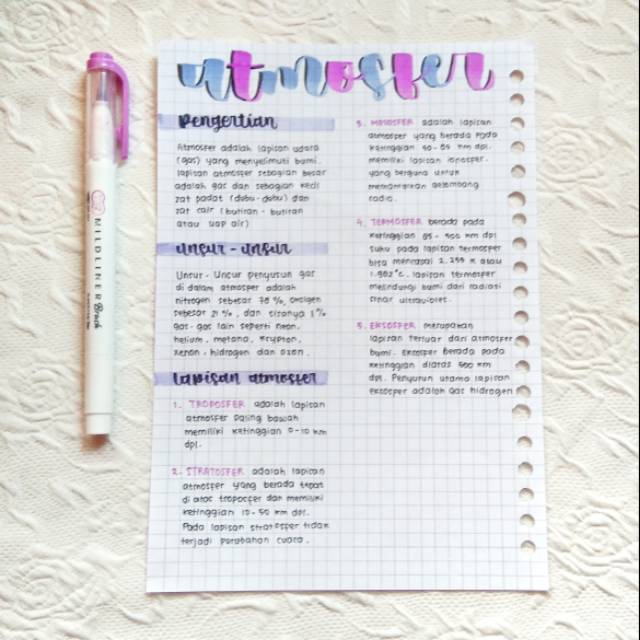 atmosfer
Pengertian
Atmosfer adalah lapisan udara
(gas) yang menyelimuti bumi.
lapisan atmosfer sebagian besar
adalah gas dan sebagian kecil
zat padat (debu-debu) dan
zat cair (butiran-butiran
atau uap air)
unsur-unsur
Unsur-Unsur penyusun gas
di dalam atmosfer adalah
nitrogen sebesar 78%, oksigen
sebesar 21%, dan sisanya 1%
gas-gas lain seperti neon,
helium, metana, krypton,
xenon, hidrogen dan ozon.
lapisan atmosfer
1. TROPOSFER adalah lapisan
atmosfer paling bawah
memiliki ketinggian 0-10 km
dpl.
2. STRATOSFER adalah lapisan
atmosfer yang berada tepat
di atas troposfer dan memiliki
ketinggian 10-50 km dpl.
Pada lapisan stratosfer tidak
terjadi perubahan cuaca.
3. MESOSFER adalah lapisan
atmosfer yang berada pada
ketinggian 50-85 km dpl.
memiliki lapisan ionosfer.
yang berguna untuk
memancarkan gelombang
radio.
4. TERMOSFER berada pada
ketinggian 85-500 km dpl
suhu pada lapisan termosfer
bisa mencapai 2.255 K atau
1.982°C. lapisan termosfer
melindungi bumi dari radiasi
sinar ultraviolet.
5. EKSOSFER merupakan
lapisan terluar dari atmosfer
bumi. Eksosfer berada pada
ketinggian diatas 500 km
dpl. Penyusun utama lapisan
eksosfer adalah gas hidrogen
MILDLINER Brush